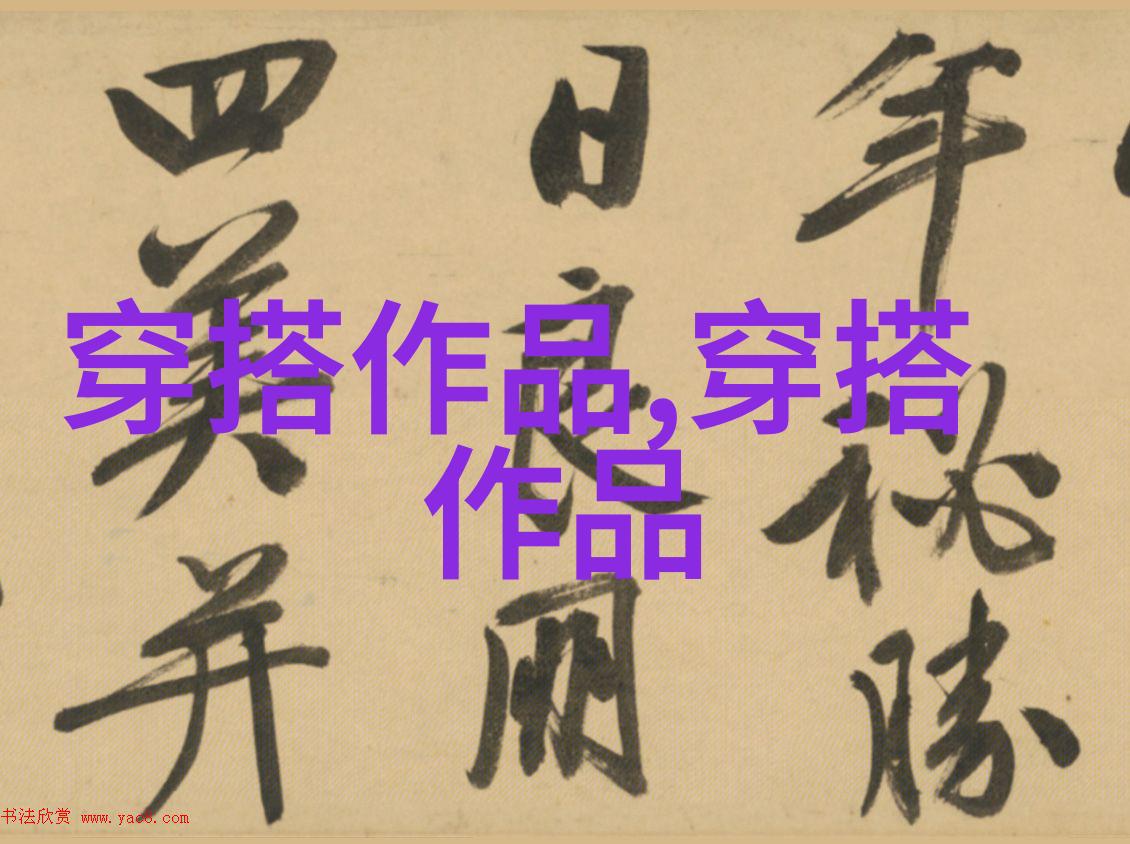 穿搭作品,穿搭
作品
年秘勝
日良朋
四美并
书法欣赏 www.yac8.com